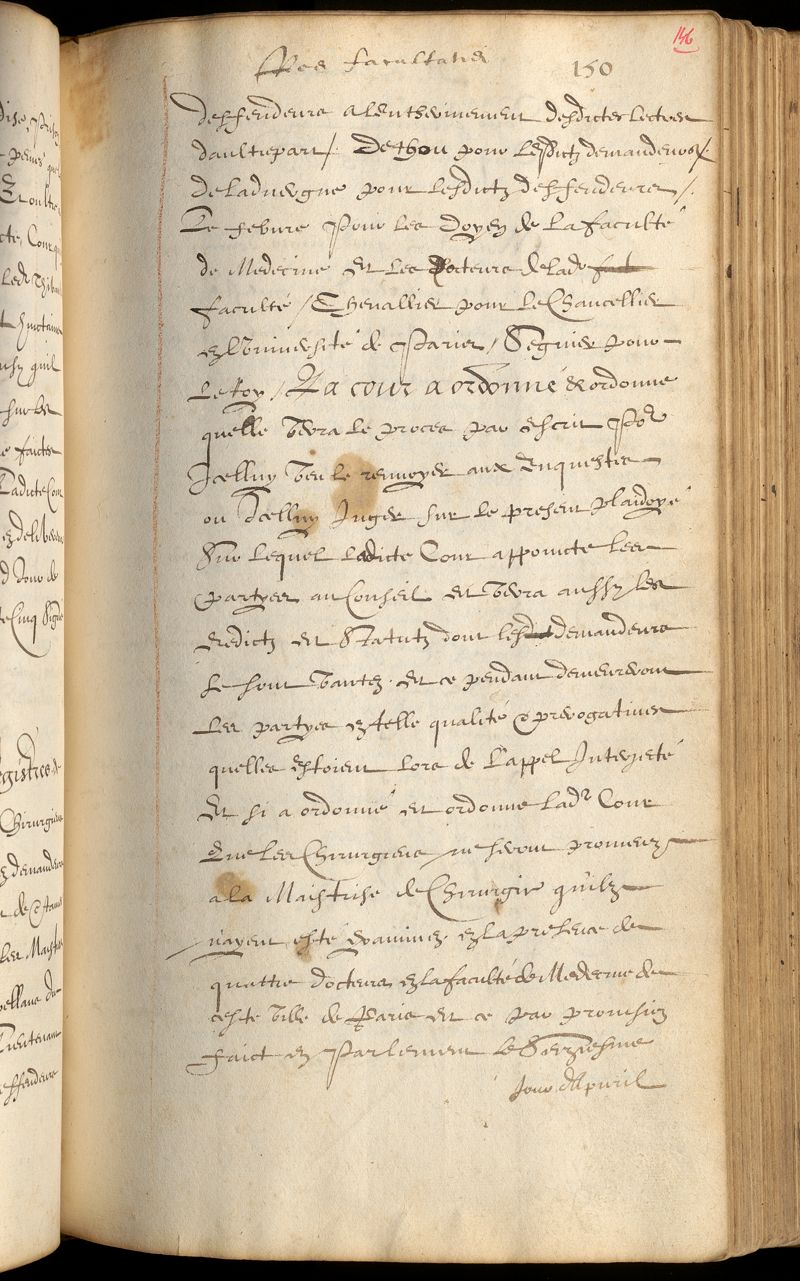 146
Res facultatis 150
deffendeurs a lentherinement desdictes lectres
daultrepart /. Dethou pour lesdictz demandeurs /.
De laduergne pour lesdictz deffendeurs /.
Le febure pour les doyen de la faculté
de Medecine et les docteurs de lad
faculté / Chevallier pour le Chancellier
en Luniversité de Paris / Seguier pour
le Roy / La cour a ordonné & ordonne
quelle verra le proces par escrit po{r}
Icelluy veu le renvoyer aux Enquestes
ou Icelluy Juger sur le present plaidoyé
Sur lequel ladicte Cour appoincte les
partyes au Conseil et verra aussy les
Edictz et Statutz dont lesd demandeurs
se sont vantez. Et ce pendant demeureront
les partyes en telle qualité & prerogatives
quelles estoient lors de l'appel Interjecté
Et si a ordonné et ordonne lad. Cour
Que les Chirurgiens ne seront promeuz
a la Maistrise de Chirurgie quilz
nayent esté examinez en la presence de
quattre docteurs en la faculté de Medecine de
ceste ville de Paris et ce par provision
Faict en Parlement le Seziesme
Jour dApvril
gistres
Chirurgiens
demandeurs
Les Maistres
Lieutenant
deffendeurs